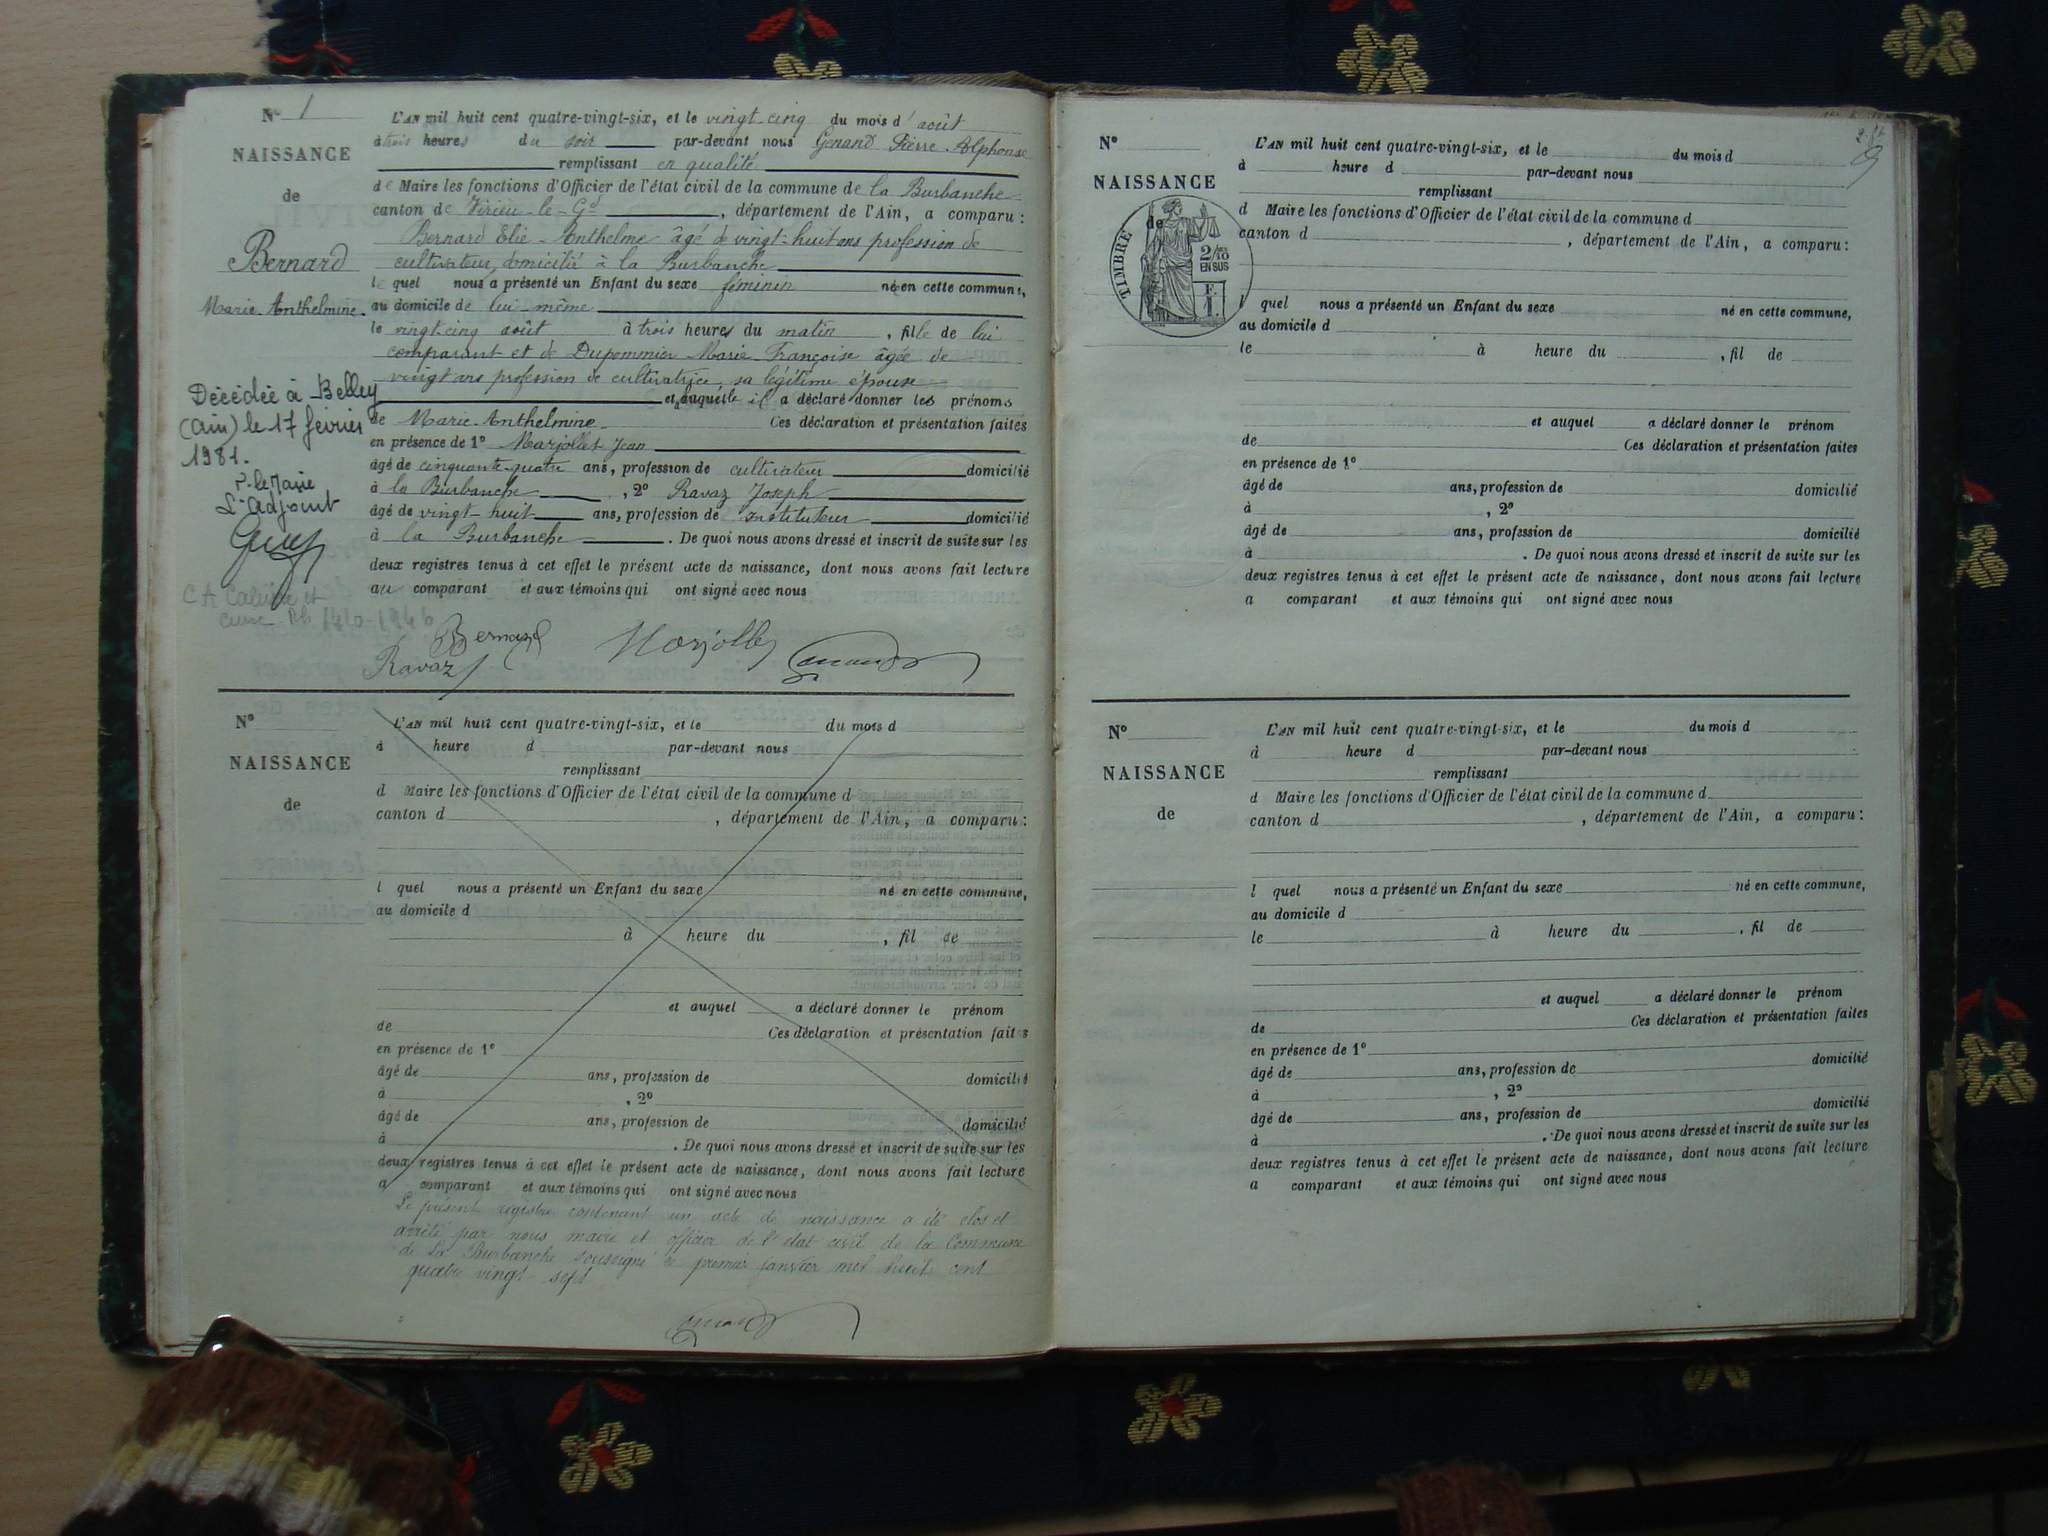 N° 1
NAISSANCE
de
Bernard
Marie Anthelmine.
L'AN mil huit cent quatre-vingt-six, et le vingt-cinq du mois d'août
à trois heures du soir par-devant nous Genand Pierre-Alphonse
remplissant en qualité
de Maire les fonctions d'Officier de l'état civil de la commune de la Burbanche
canton de Virieu-le-Gd, département de l'Ain, a comparu :
Bernard Elie-Anthelme âgé de vingt-huit ans profession de
cultivateur, domicilié à la Burbanche
le quel nous a présenté un Enfant du sexe féminin né en cette commune,
au domicile de lui-même
le vingt-cinq août à trois heures du matin, fille de lui
comparant et de Dupommier Marie Françoise âgée de
vingt ans profession de cultivatrice, sa légitime épouse
et auquel il a déclaré donner les prénoms
de Marie Anthelmine Ces déclaration et présentation faites
en présence de 1° Marjollet Jean
âgé de cinquante-quatre ans, profession de cultivateur domicilié
à la Burbanche, 2° Ravaz Joseph
âgé de vingt-huit ans, profession de instituteur domicilié
à la Burbanche. De quoi nous avons dressé et inscrit de suite sur les
deux registres tenus à cet effet le présent acte de naissance, dont nous avons fait lecture
au comparant et aux témoins qui ont signé avec nous
Bernard Marjollet Genand
Ravaz
Décédée à Belley
(Ain) le 17 février
1981.
P. le Maire
L'Adjoint
N°
NAISSANCE
de
L'AN mil huit cent quatre-vingt-six, et le du mois d
à heure d par-devant nous
remplissant
d Maire les fonctions d'Officier de l'état civil de la commune d
canton d , département de l'Ain, a comparu :
l quel nous a présenté un Enfant du sexe né en cette commune,
au domicile d
à heure du , fil de
et auquel a déclaré donner le prénom
de Ces déclaration et présentation faites
en présence de 1°
âgé de ans, profession de domicilié
à , 2°
âgé de ans, profession de domicilié
à . De quoi nous avons dressé et inscrit de suite sur les
deux registres tenus à cet effet le présent acte de naissance, dont nous avons fait lecture
a comparant et aux témoins qui ont signé avec nous
Le présent registre contenant un acte de naissance a été clos et
arrêté par nous maire et officier de l'état civil de la Commune
de La Burbanche soussigné le premier janvier mil huit cent
quatre vingt sept
Genand
N°
NAISSANCE
de
TIMBRE
2/10
EN SUS
F.
1.
L'AN mil huit cent quatre-vingt-six, et le du mois d
à heure d par-devant nous
remplissant
d Maire les fonctions d'Officier de l'état civil de la commune d
canton d , département de l'Ain, a comparu :
l quel nous a présenté un Enfant du sexe né en cette commune,
au domicile d
le à heure du , fil de
et auquel a déclaré donner le prénom
de Ces déclaration et présentation faites
en présence de 1°
âgé de ans, profession de domicilié
à , 2°
âgé de ans, profession de domicilié
à . De quoi nous avons dressé et inscrit de suite sur les
deux registres tenus à cet effet le présent acte de naissance, dont nous avons fait lecture
a comparant et aux témoins qui ont signé avec nous
N°
NAISSANCE
de
L'AN mil huit cent quatre-vingt-six, et le du mois d
à heure d par-devant nous
remplissant
d Maire les fonctions d'Officier de l'état civil de la commune d
canton d , département de l'Ain, a comparu :
l quel nous a présenté un Enfant du sexe né en cette commune,
au domicile d
le à heure du , fil de
et auquel a déclaré donner le prénom
de Ces déclaration et présentation faites
en présence de 1°
âgé de ans, profession de domicilié
à , 2°
âgé de ans, profession de domicilié
à . De quoi nous avons dressé et inscrit de suite sur les
deux registres tenus à cet effet le présent acte de naissance, dont nous avons fait lecture
a comparant et aux témoins qui ont signé avec nous